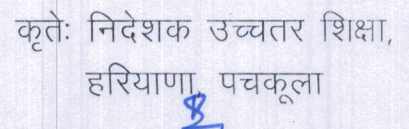 कृतेः निदेशक उच्चतर शिक्षा,
हरियाणा, पचकूला